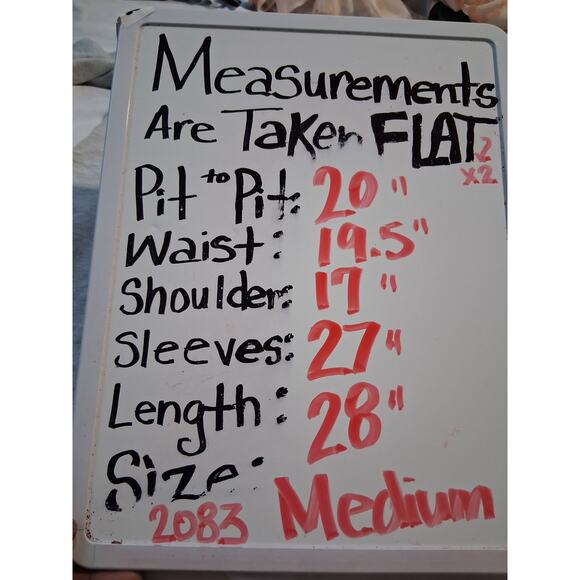 Measurements
Are Taken FLAT
x2
Pit to Pit: 20"
Waist: 19.5"
Shoulder: 17"
Sleeves: 27"
Length: 28"
Size: Medium
2083